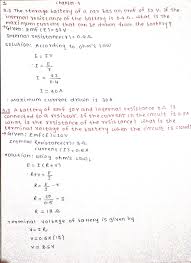 3.1 The storage battery of a car has an emf of 12 V. If
the internal resistance of the battery is 0.4 Ω. what is the
maximum current that can be drawn from the battery?
Given: Emf(E) = 12V
Internal resistance(r) = 0.4Ω
Solution: According to ohm's law
E = Ir
I = E/r
I = 12/0.4
I = 30A
∴ Maximum current drawn is 30A
3.2 A battery of emf 10V and internal resistance 3 Ω is
connected to a resistor. If the current in the circuit is 0.5A
what is the resistance of the resistor? What is the
terminal voltage of the battery when the circuit is closed?
Given: Emf(E) = 10V
Internal Resistance(r) = 3Ω
current(I) = 0.5A
Solution: Using ohm's law,
E = I(R+r)
R = 17Ω
Terminal voltage of battery is given by
V = IR
V = 0.5×17
V = 8.5V